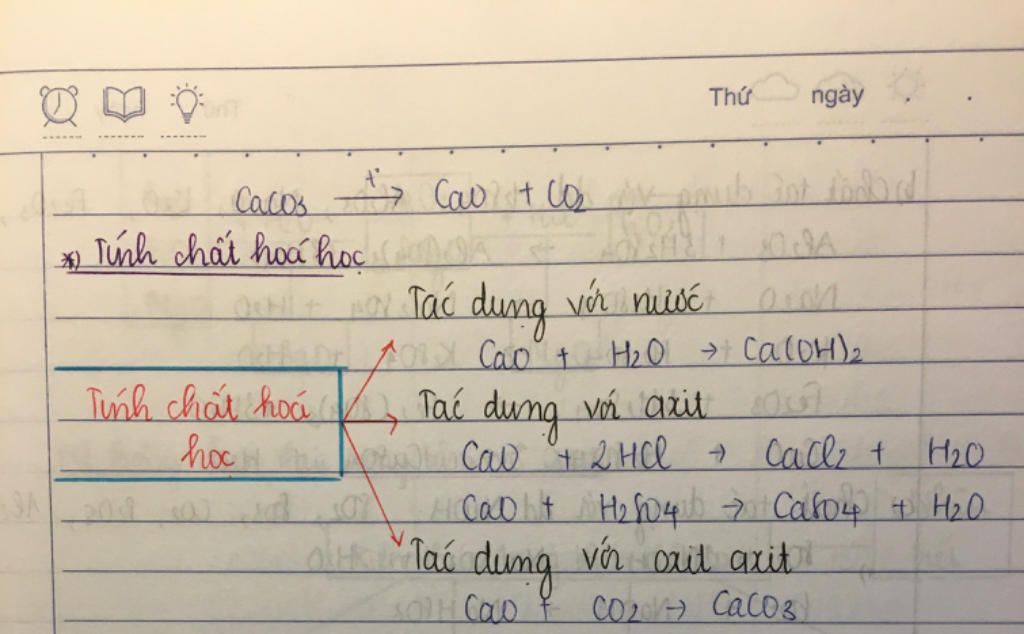 Thứ ngày
CaCO3 t° → CaO + CO2
*) Tính chất hoá học
Tác dụng với nước
CaO + H2O → Ca(OH)2
Tính chất hoá
học
Tác dụng với axit
CaO + 2HCl → CaCl2 + H2O
CaO + H2SO4 → CaSO4 + H2O
Tác dụng với oxit axit
CaO + CO2 → CaCO3